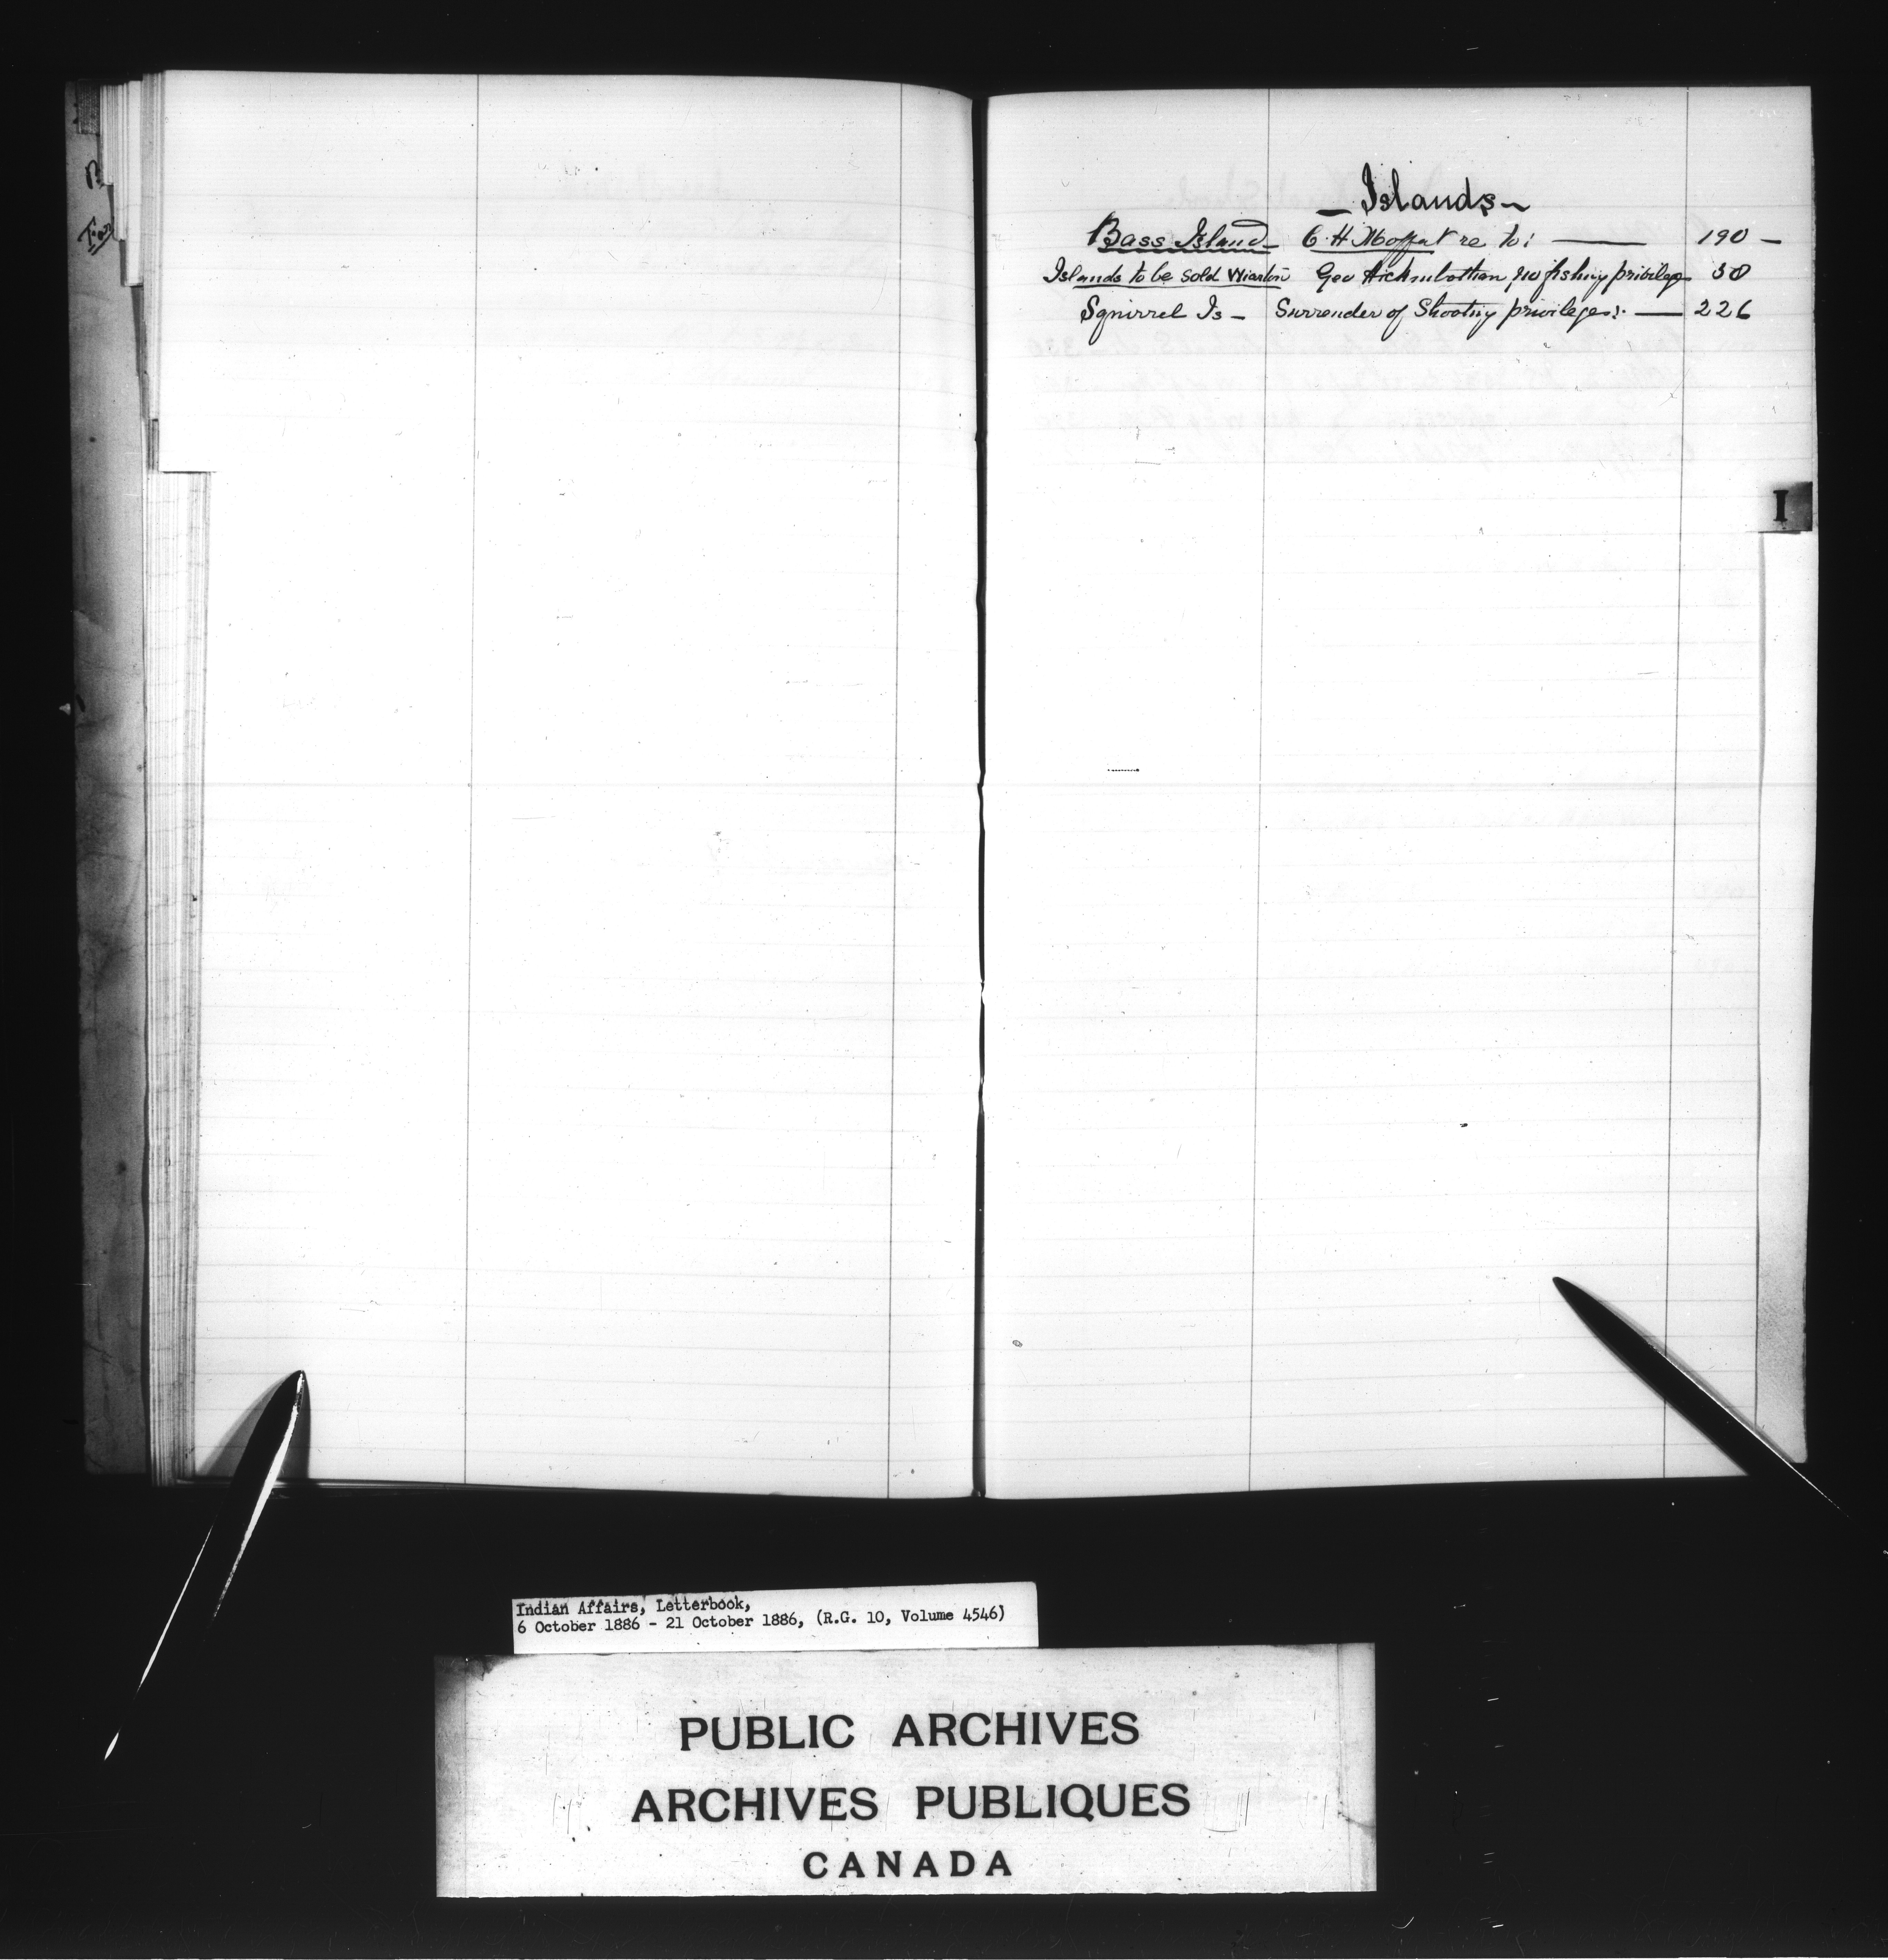 – Islands –
Bass Island – C. H. Moffat re to: — 190 –
Islands to be sold Wiarton Geo Hickinbotham, no fishing privileges 38
Squirrel Is – Surrender of Shooting privileges: — 226
I
Indian Affairs, Letterbook,
6 October 1886 - 21 October 1886, (R.G. 10, Volume 4546)
PUBLIC ARCHIVES
ARCHIVES PUBLIQUES
CANADA